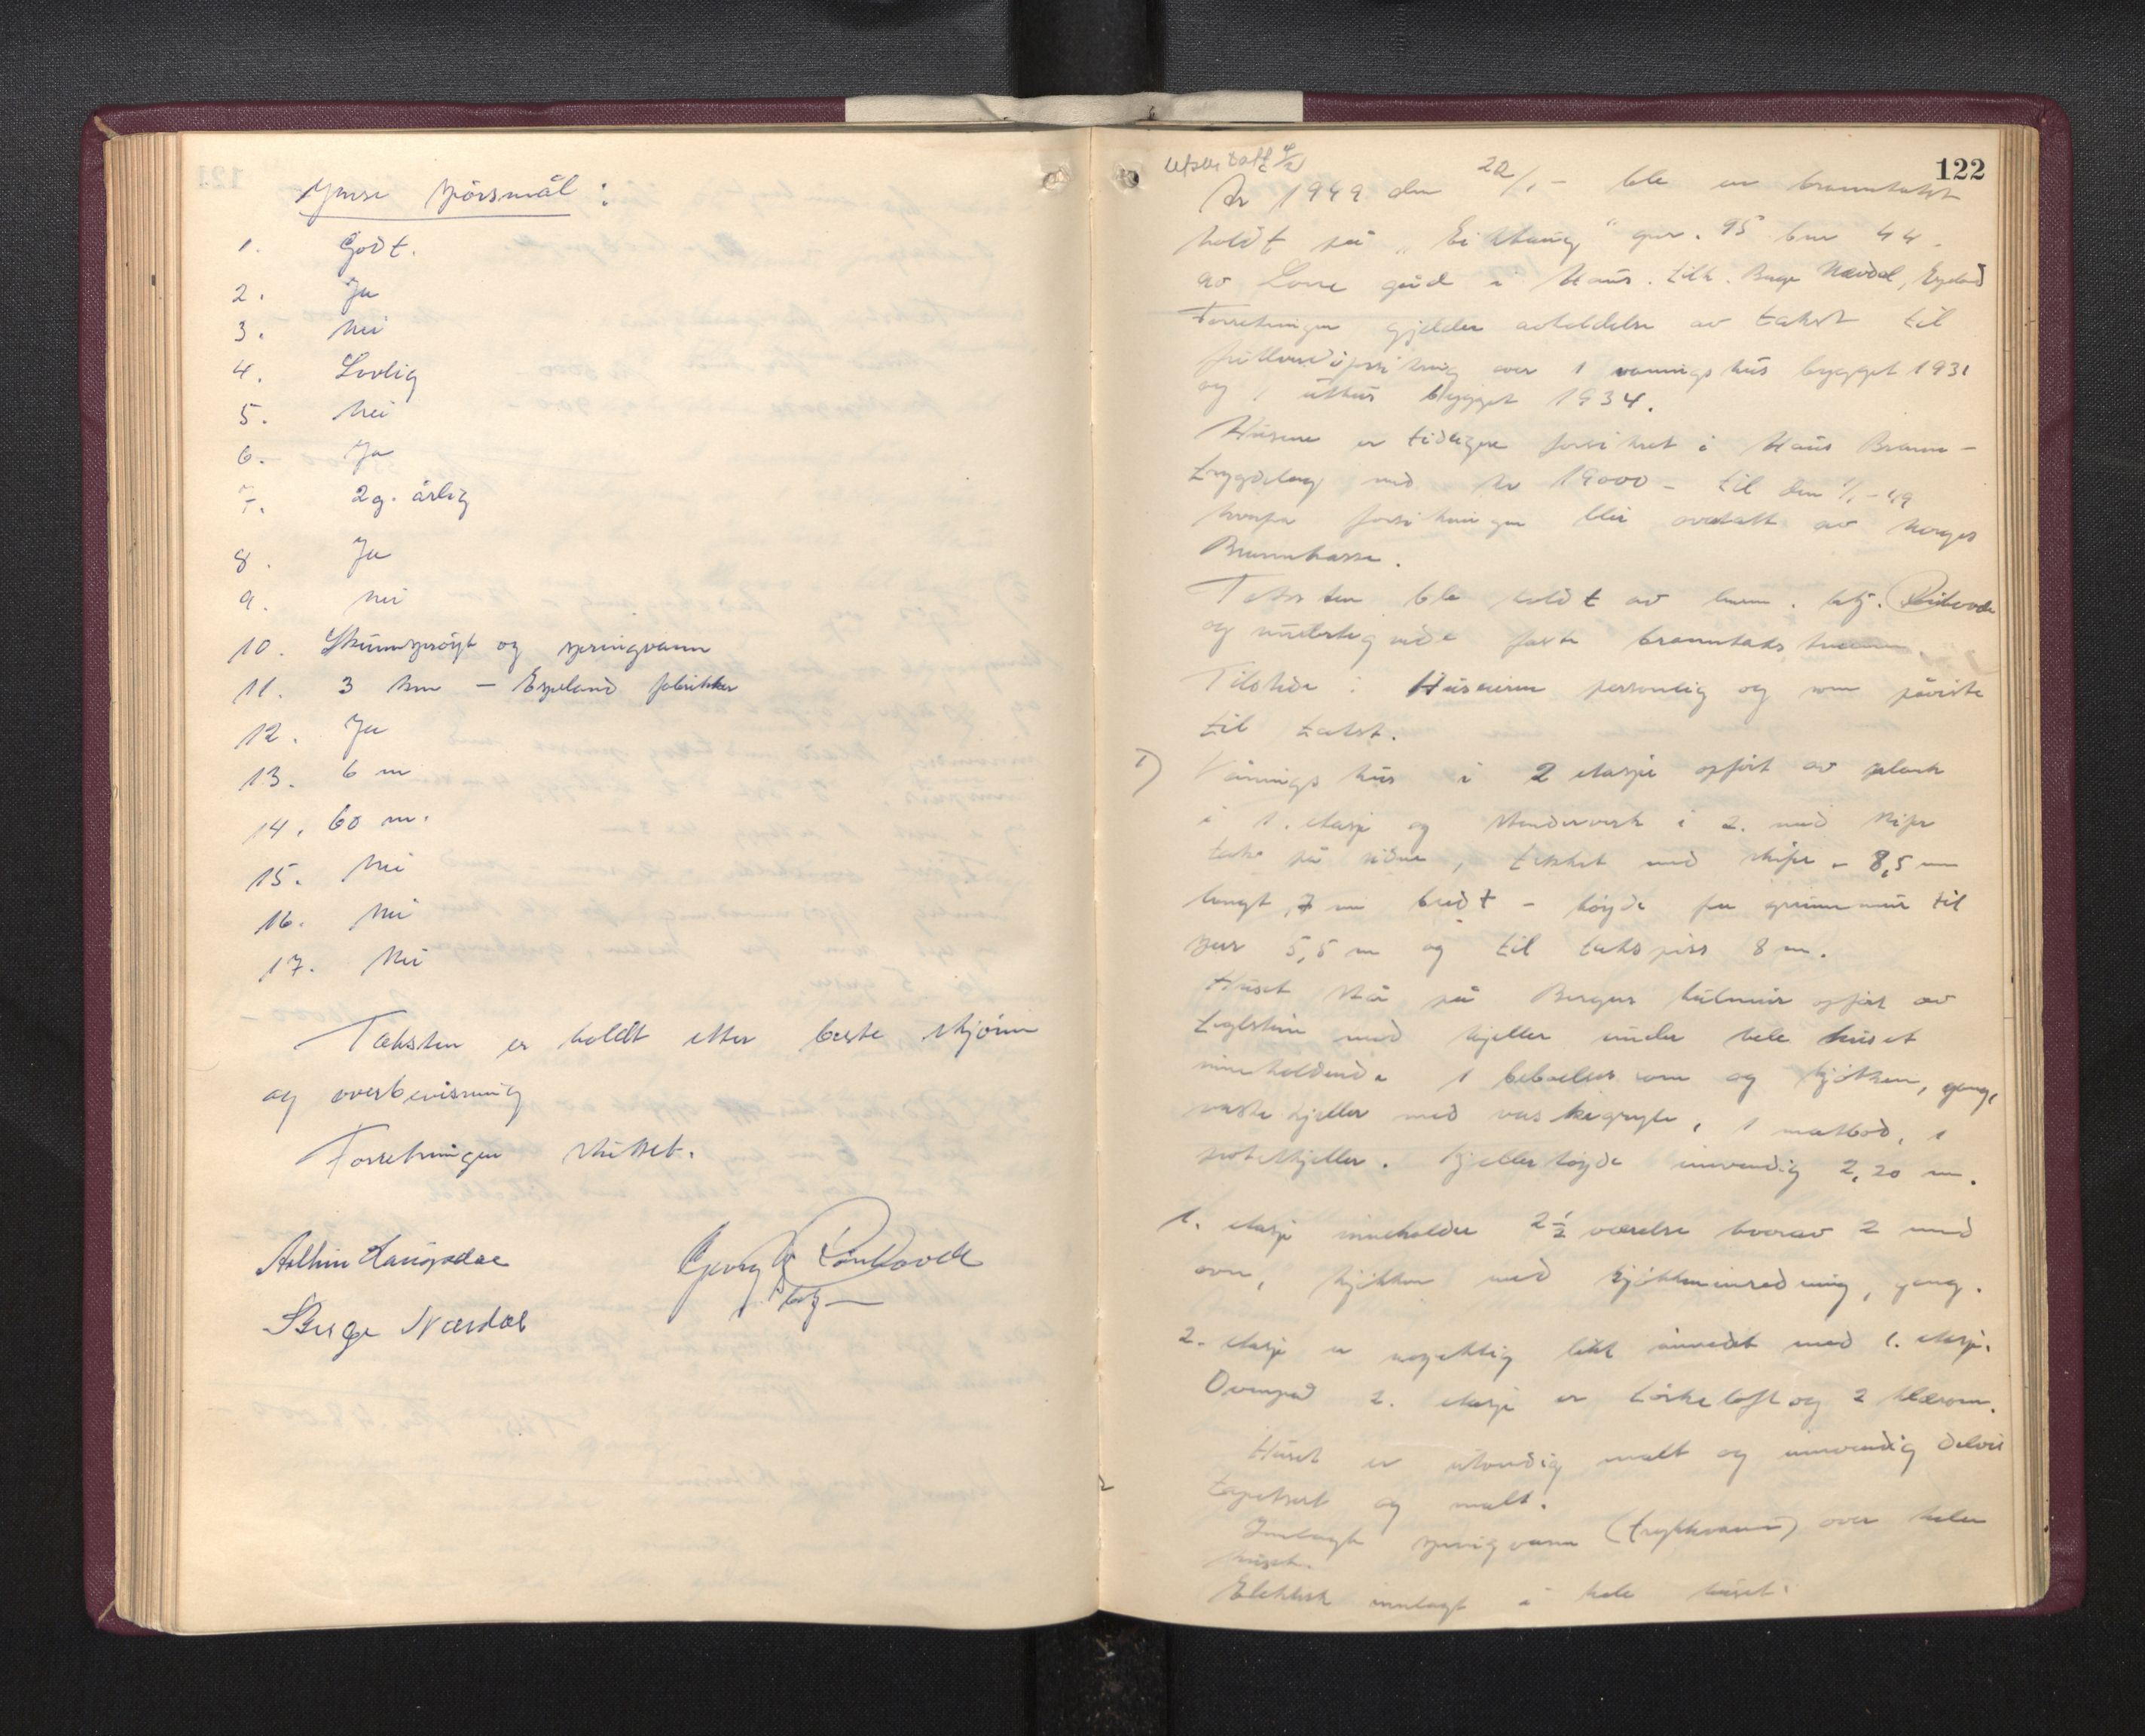 Ymse spörsmål :
1. Godt.
2. Ja
3. Nei
4. Lovlig
5. Nei
6. Ja
7. 2 g. årlig
8. Ja
9. Nei
10. Skumsprøyt og springvann
11. 3 km — Espeland fabrikker
12. Ja
13. 6 m
14. 60 m.
15. Nei
16. Nei
17. Nei
Taksten er holdt etter beste skjönn
og overbevisning
Forretningen sluttet.
Georg
Birger Nævdal
122
År 1949 den 20/1 – ble en branntakst
holdt på „Eikhaug" gnr. 95 bnr 44
av Lone gård i Haus. tilh. Nævdal, Espeland
Forretningen gjelder avholdelse av takst til
fullverdiforsikring over 1 vaaningshus bygget 1931
og 1 uthus bygget 1934.
Husene er tidligere forsikret i Haus Brann-
trygdelag med kr 19000 – til den 1/1 – 49
hvorfra forsikringen blir overtatt av Norges
Brannkasse.
Taksten ble holdt av lensm. btj.
og undertegnede faste branntakstmenn.
Tilstede : Huseieren personlig og som påviste
til takst.
1) Våningshus i 2 etasje opfört av plank
i 1. etasje og stenderverk i 2. med skifer
tak på sidene, tekket med skifer – 8,5 m
langt, 7 m bredt – høyde fra grunnmur til
gesims 5,5 m og til takspiss 8 m.
Huset står på Bergens hulmur opfört av
teglstein med kjeller under hele huset
inneholdende 1 beboelsesrom og kjökken, gang,
vaskekjeller med vaskegryte, 1 matbod, 1
potetkjeller. Kjellerhöyde innvendig 2,20 m.
1. etasje inneholder 2½ værelse hvorav 2 med
ovn, kjökken med kjökkeninredning, gang.
2. etasje er nøyaktig likt innredet med 1. etasje.
Ovenpå 2. etasje er törkeloft og 2 klærom.
Huset er utvendig malt og innvendig delvis
tapetsert og malt.
Innlagt springvann (trykkvann) over hele
huset.
Elektrisk innlagt i hele huset.